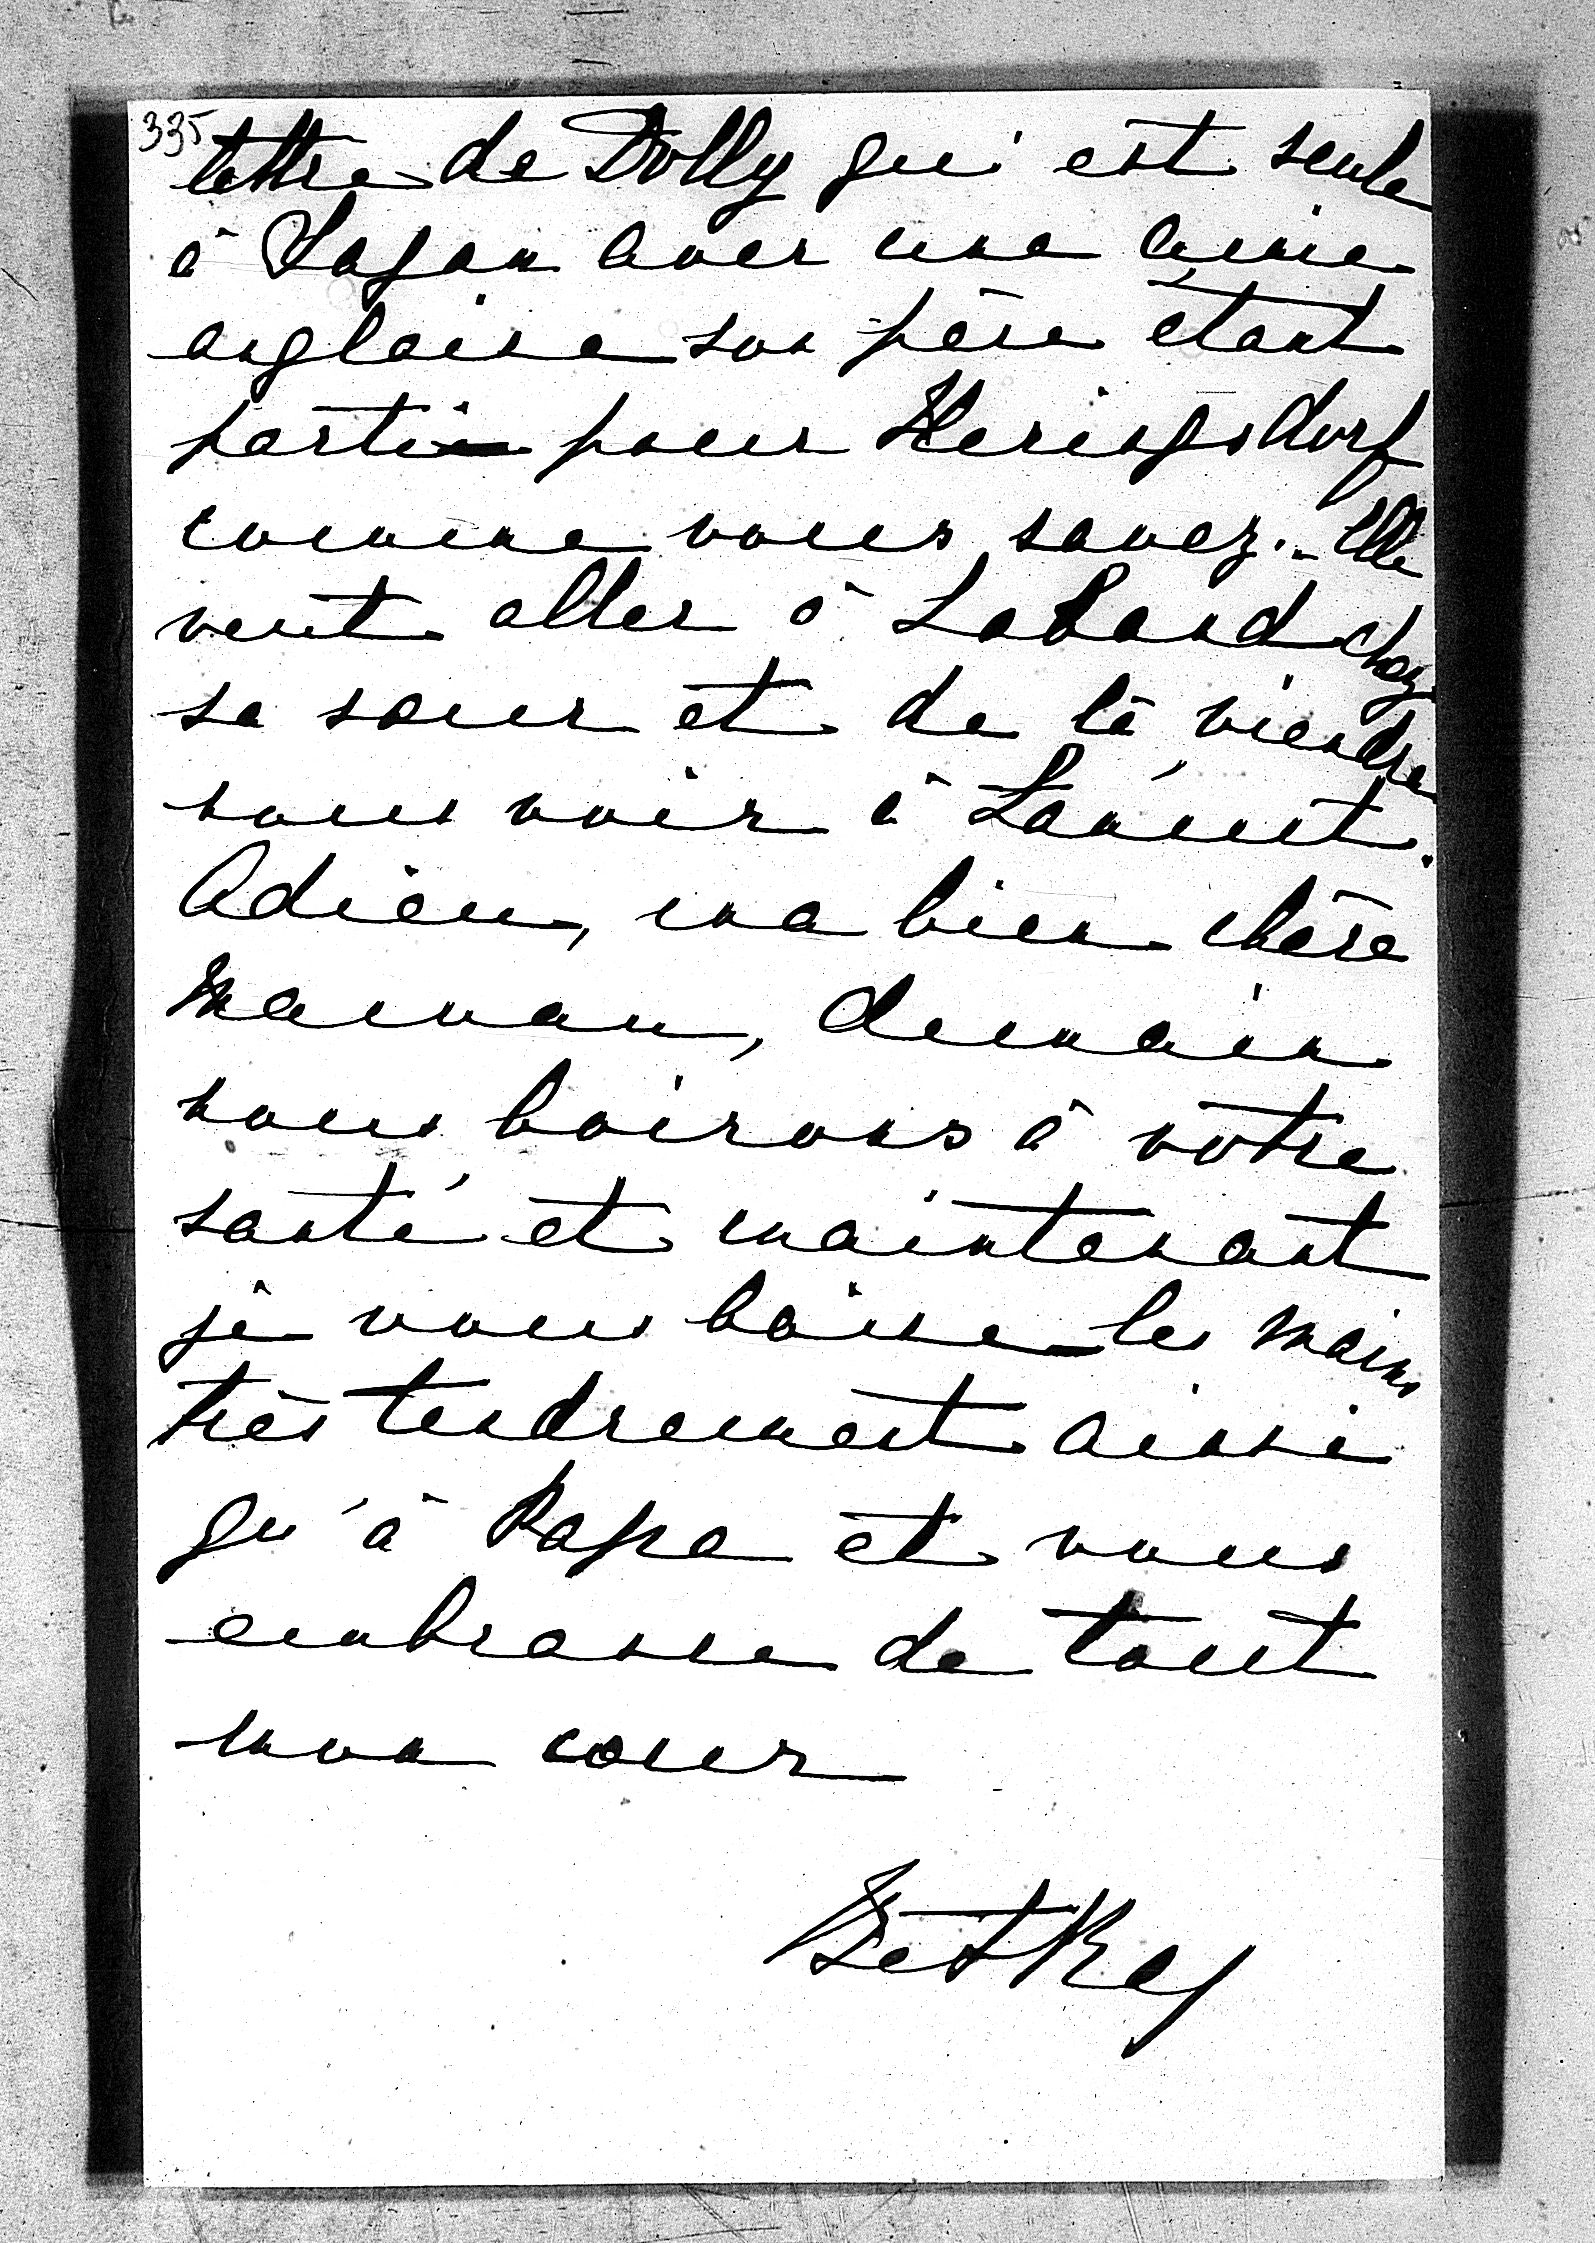 335
lettre de Dolly qui est seule
à Sagan avec une amie
anglaise son père étant
parti pour Heringsdorf
comme vous savez. Elle
veut aller à Laband chez
sa sœur et de là viendra
nous voir à Łańcut.
Adieu, ma bien chère
Maman, demain
nous boirons à votre
santé et maintenant
je vous baise les mains
très tendrement ainsi
qu'à Papa et vous
embrasse de tout
mon cœur
Betka